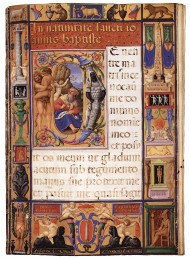 In natiuitate sancti io
annis baptiste
E uentre
matris mee
uocauit me
dominus no
mine meo
et posu
it os meum ut gladium
acutum sub tegumento
manus sue protexit me
posuit me quasi